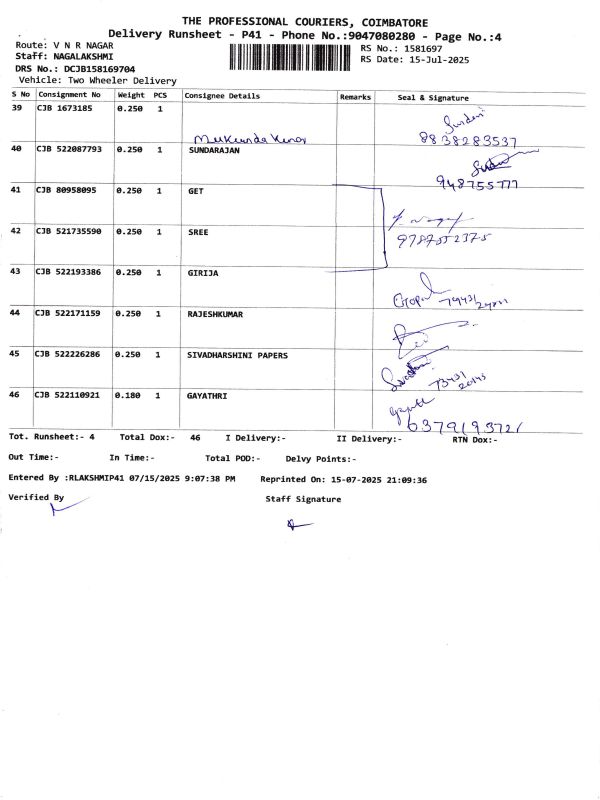 THE PROFESSIONAL COURIERS, COIMBATORE
Delivery Runsheet - P41 - Phone No.:9047080280 - Page No.:4
Route: V N R NAGAR RS No.: 1581697
Staff: NAGALAKSHMI RS Date: 15-Jul-2025
DRS No.: DCJB158169704
Vehicle: Two Wheeler Delivery
S No Consignment No Weight PCS Consignee Details Remarks Seal & Signature
39 CJB 1673185 0.250 1
Mukunda Kumar 8838283537
40 CJB 522087793 0.250 1 SUNDARAJAN
948755777
41 CJB 80958095 0.250 1 GET
42 CJB 521735590 0.250 1 SREE 9787552375
43 CJB 522193386 0.250 1 GIRIJA
Gopal
44 CJB 522171159 0.250 1 RAJESHKUMAR
45 CJB 522226286 0.250 1 SIVADHARSHINI PAPERS
73431
20145
46 CJB 522110921 0.180 1 GAYATHRI
6379193721
Tot. Runsheet:- 4 Total Dox:- 46 I Delivery:- II Delivery:- RTN Dox:-
Out Time:- In Time:- Total POD:- Delvy Points:-
Entered By :RLAKSHMIP41 07/15/2025 9:07:38 PM Reprinted On: 15-07-2025 21:09:36
Verified By Staff Signature